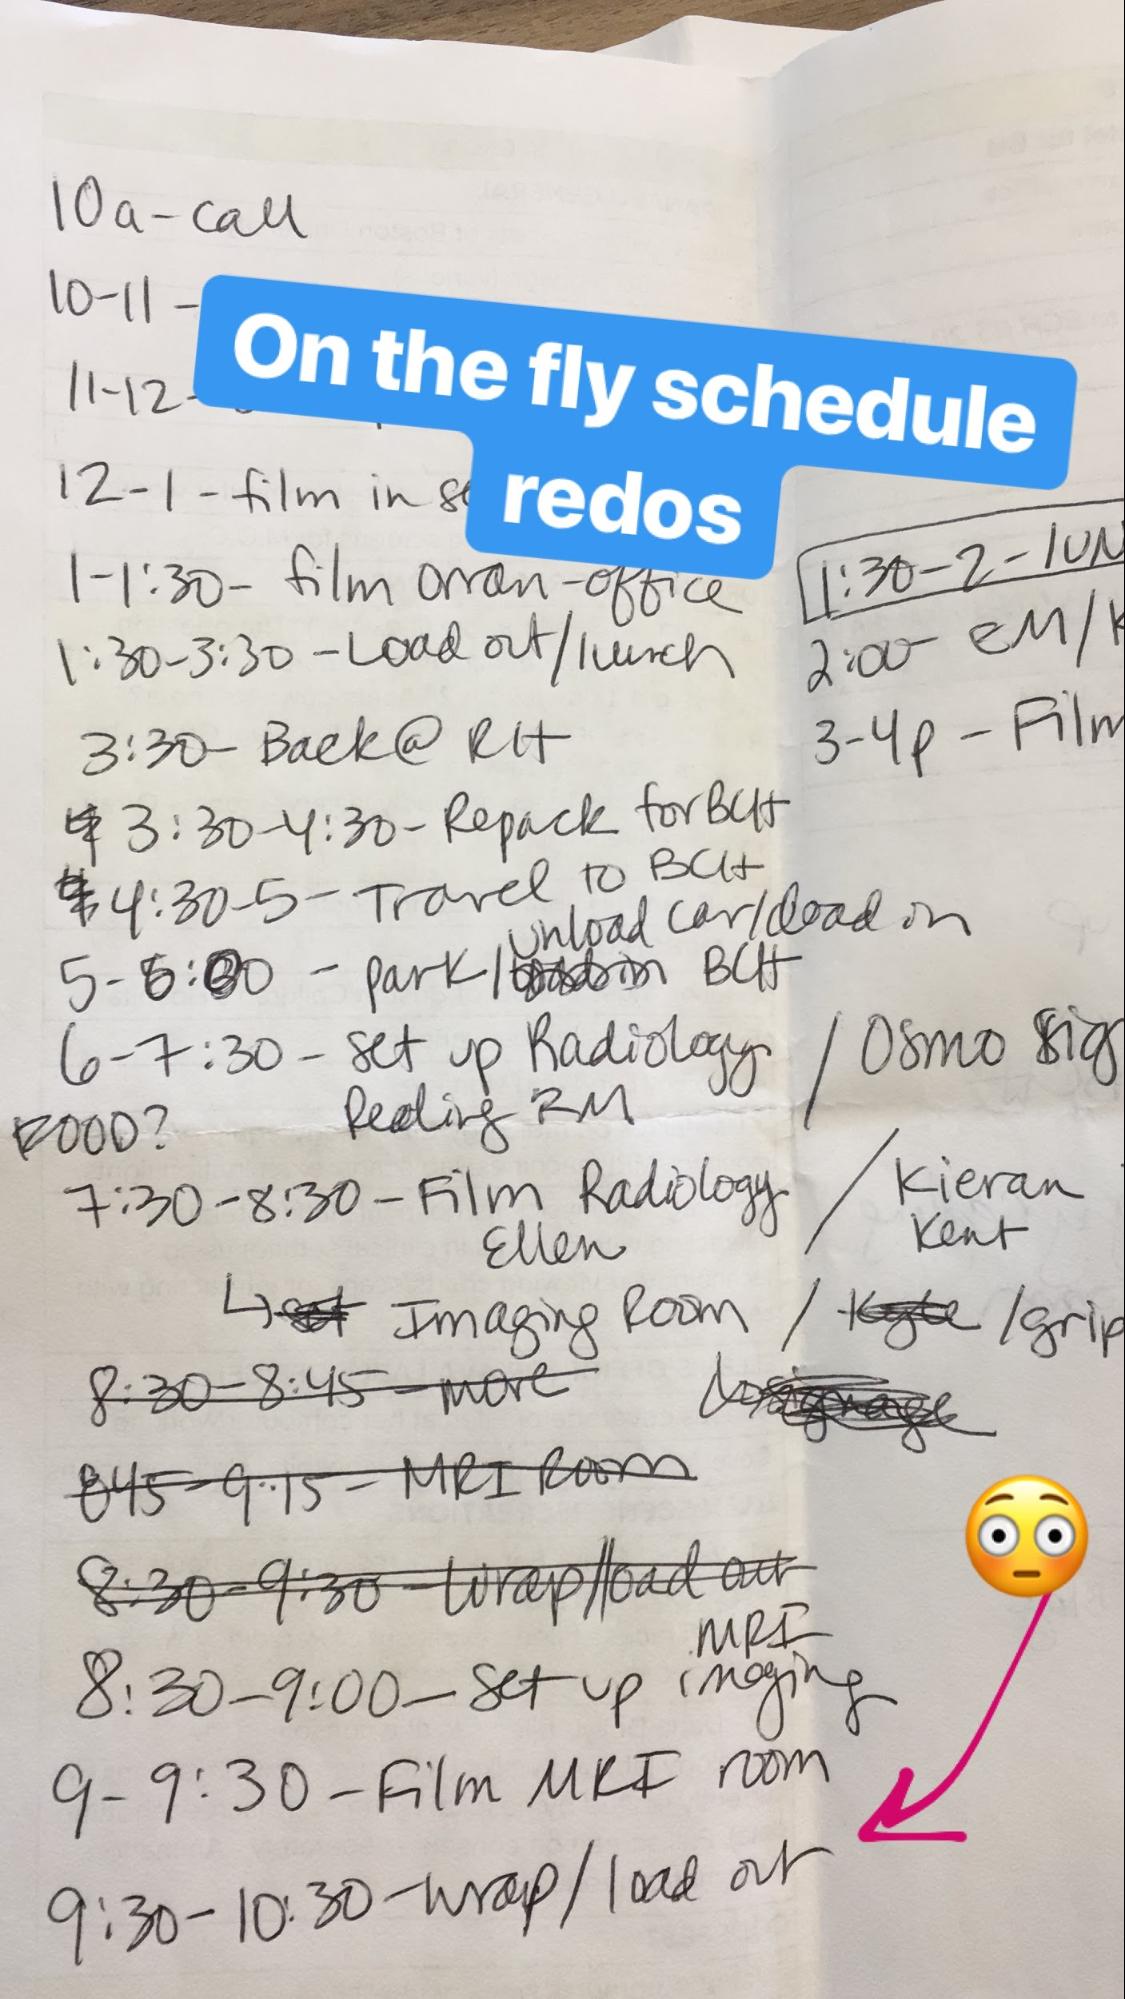 10a-call
10-11 -
11-12-
On the fly schedule
redos
12-1 - film in
1-1:30- film orran-office
1:30-3:30 -Load out/lunch
3:30- Back@ RH
3:30-4:30- Repack for BCH
4:30-5- Travel to BCH
unload car/load in
5-6:00 - park/ BCH
6-7:30 - set up Radiology / Osmo
Reading RM
FOOD?
7:30-8:30 - Film Radiology / Kieran
Ellen Kent
↳ Imaging Room / /grip
8:30-8:45 - more
845-9:15 - MRI Room
8:30-9:30 - wrap/load out
MRI
8:30-9:00- set up imaging
9-9:30 -Film MRI room
9:30-10:30 -wrap/load out
1:30-2-
2:00- EM/
3-4p - Film